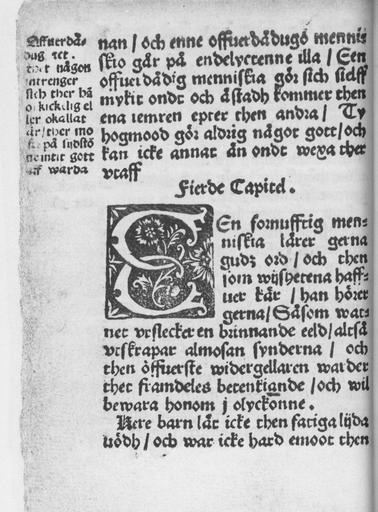 Offuerdå-
dug ået.
thet någon
sich ther hå
ler okallat
år/ther mo
ste på sydstö
neintit gott
aff warda
nan / och enne offuerdådugo mennis
skio går på endelyctenne illa / Een
offuerdådig menniskia gör sich sielff
mykit ondt och åstadh kommer then
ena iemren epter then andra / Ty
hogmood gör aldrig något gott / och
kan icke annat ån ondt wexa ther
vtaff
Fierde Capitel.
EEn fornufftig men-
niskia lårer gerna
gudz ord / och then
som wijshetena haff-
uer kår / han hörer
gerna / Såsom wat-
net vtslecker en brinnande eeld / altså
vtskrapar almosan synderna / och
then öffuerste widergellaren warder
thet framdeles betenkiande / och wil
bewara honom j olyckonne.
Kere barn låt icke then fatiga lijda
nödh / och war icke hard emoot then